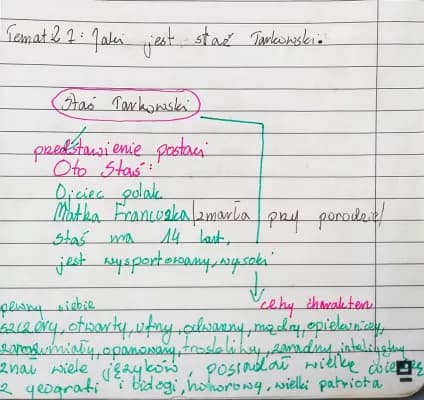 Temat 21: Jaki jest staś Tarkowski.
Staś Tarkowski
przedstawienie postaci
Oto Staś:
Ojciec polak
Matka Francuzka /zmarła przy porodzie/
Staś ma 14 lat,
jest wysportowany, wysoki
pewny siebie
cehy charakteru
szczery, otwarty, ufny, odważny, mądry, opiekuńczy,
zarozumiały, opanowany, troskliwy, zaradny, inteligentny
znał wiele języków, posiadał wielką
z geografi i biologi, honorowy, wielki patriota